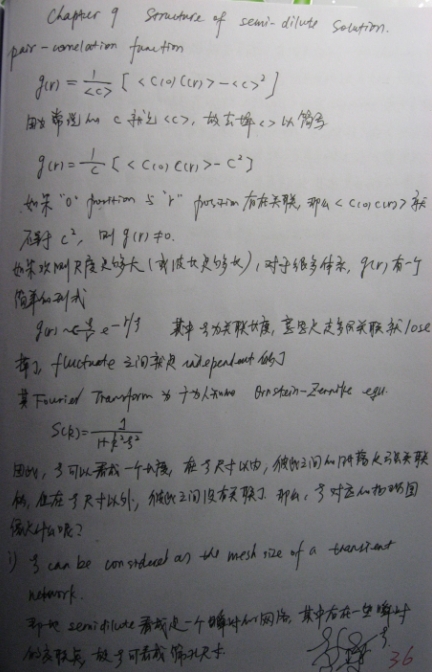 Chapter 9 Structure of semi-dilute solution.
pair-correlation function
g(r) = 1/<c> [ <c(o) c(r)> - <c>² ]
因为常遇的 c 就是 <c>, 故去掉 <> 以简写
g(r) = 1/c [ <c(o) c(r)> - c² ]
如果 "0" position 与 "r" position 存在关联, 那么 <c(o) c(r)> 就
不等于 c², 则 g(r) ≠ 0.
如果观测尺度足够大 (或波长足够长), 对于很多体系, g(r) 有一个
简单的形式
g(r) ~ e^{-r/ξ} 其中 ξ 为关联长度, 关联就 lose
掉了, fluctuate 之间就是 independent 的了
其 Fourier Transform 为 Ornstein-Zernike equ.
S(k) = 1/(1+k²ξ²)
因此, ξ 可以看成一个长度, 在 ξ 尺寸以内, 彼此之间的 关联
的, 但在 ξ 尺寸以外, 彼此之间没有关联了. 那么, ξ 对应的物理图
像是什么呢?
i) ξ can be considered as the mesh size of a transient
network.
即把 semidilute 看成是一个瞬时的网络, 其中存在一些瞬时
的交联点, 故 ξ 可看成 筛孔尺寸.
ξ
36